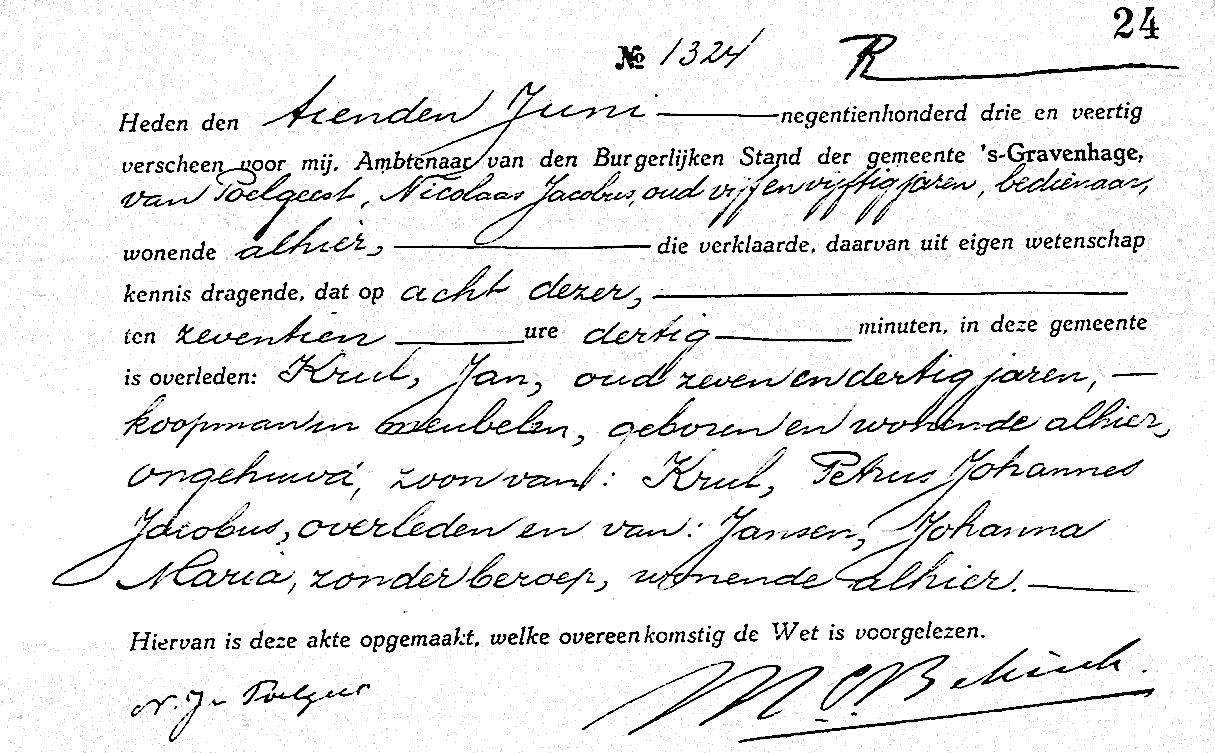 24
№ 1324 R
Heden den tienden Juni negentienhonderd drie en veertig
verscheen voor mij, Ambtenaar van den Burgerlijken Stand der gemeente 's-Gravenhage,
van Poelgeest, Nicolaas Jacobus, oud vijf en vijftig jaren, bedienaar,
wonende alhier, die verklaarde, daarvan uit eigen wetenschap
kennis dragende, dat op acht dezer,
ten zeventien ure dertig minuten, in deze gemeente
is overleden: Krul, Jan, oud zeven en dertig jaren,
koopman in meubelen, geboren en wonende alhier,
ongehuwd, zoon van: Krul, Petrus Johannes
Jacobus, overleden en van: Jansen, Johanna
Maria, zonder beroep, wonende alhier.
Hiervan is deze akte opgemaakt, welke overeenkomstig de Wet is voorgelezen.
N. J. v Poelgeest